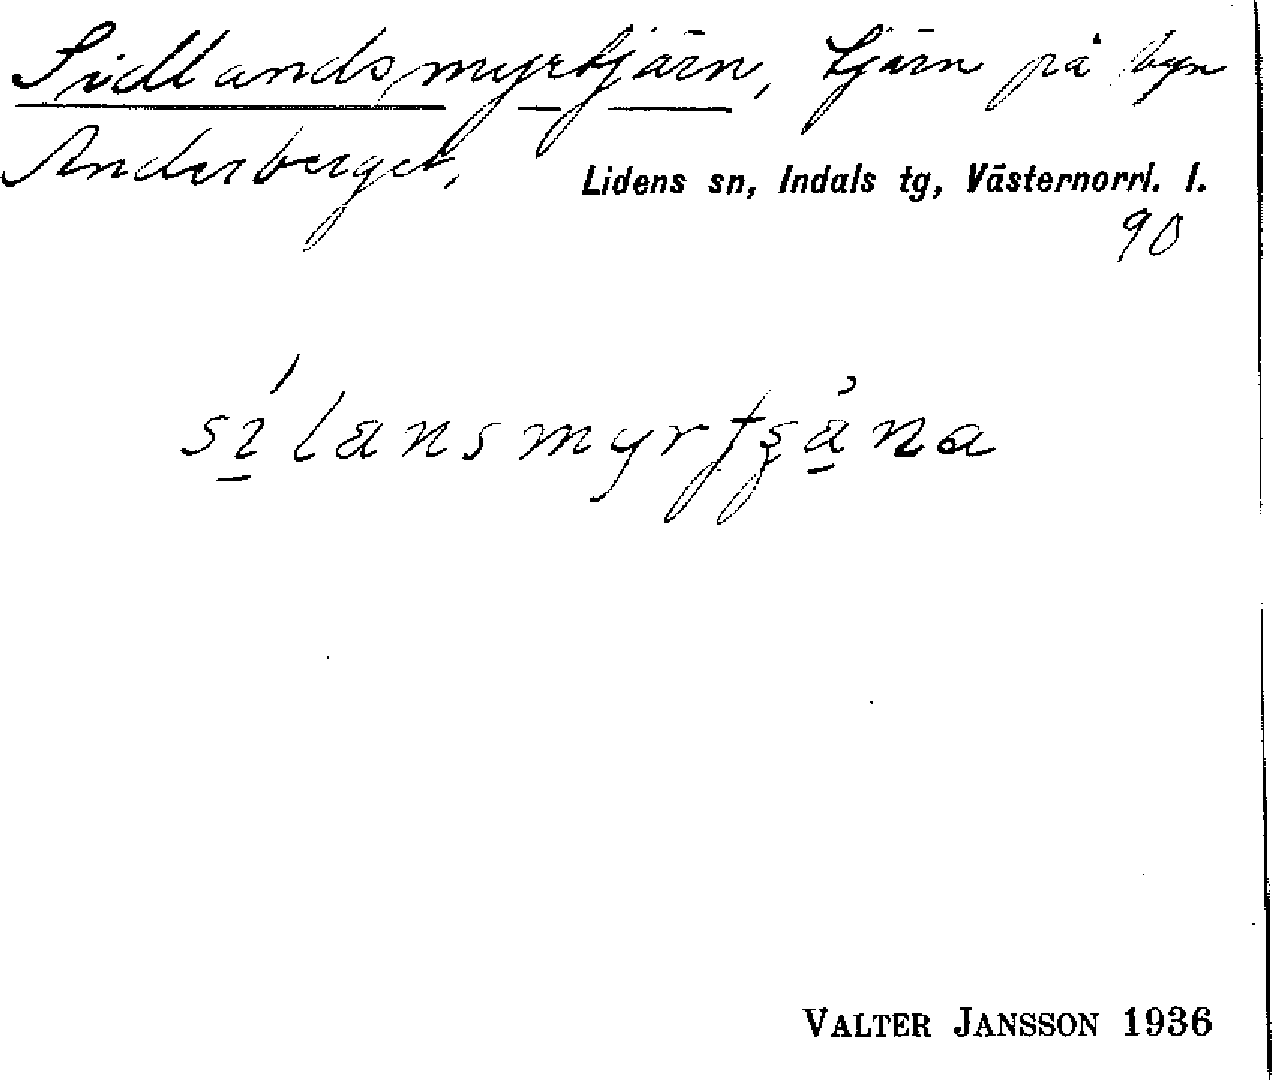 Sidlandsmyrtjärn, tjärn på byn
Anderberget,
Lidens sn, Indals tg, Västernorrl. l.
90
sı́lansmyrtʂäna
VALTER JANSSON 1936